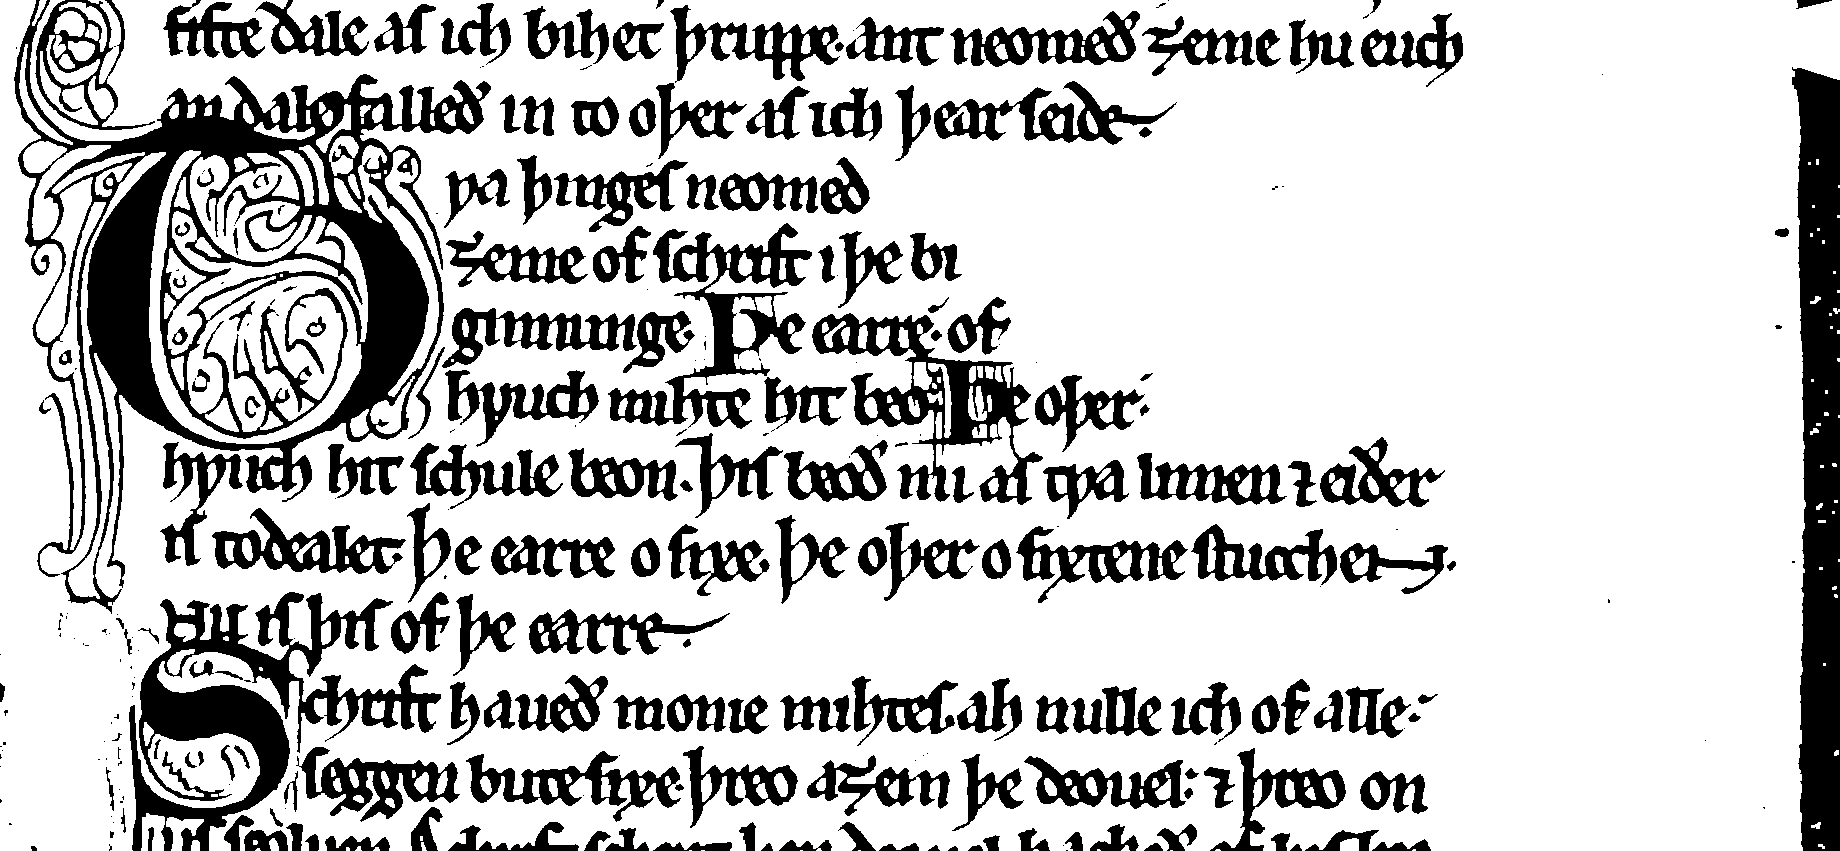 fifte dale as ich bihet þruppe. ant neomeð ȝeme hu euch
an dale falleð in to oþer as ich þear seide.
Tƿa þinges neomeð
ȝeme of schrift i þe bi
ginnunge. Þe earre; of
hƿuch mihte hit beo. Þe oþer;
hƿuch hit schule beon. þis beoð nu as tƿa limen ⁊ eiðer
is todealet. þe earre o sixe. þe oþer o sixtene stucchen.
Nu is þis of þe earre.
Schrift haueð monie mihtes. ah nulle ich of alle;
seggen bute sixe. þreo aȝein þe deouel; ⁊ þreo on
us seoluen. Schrift schent þen deouel. hackeð of his